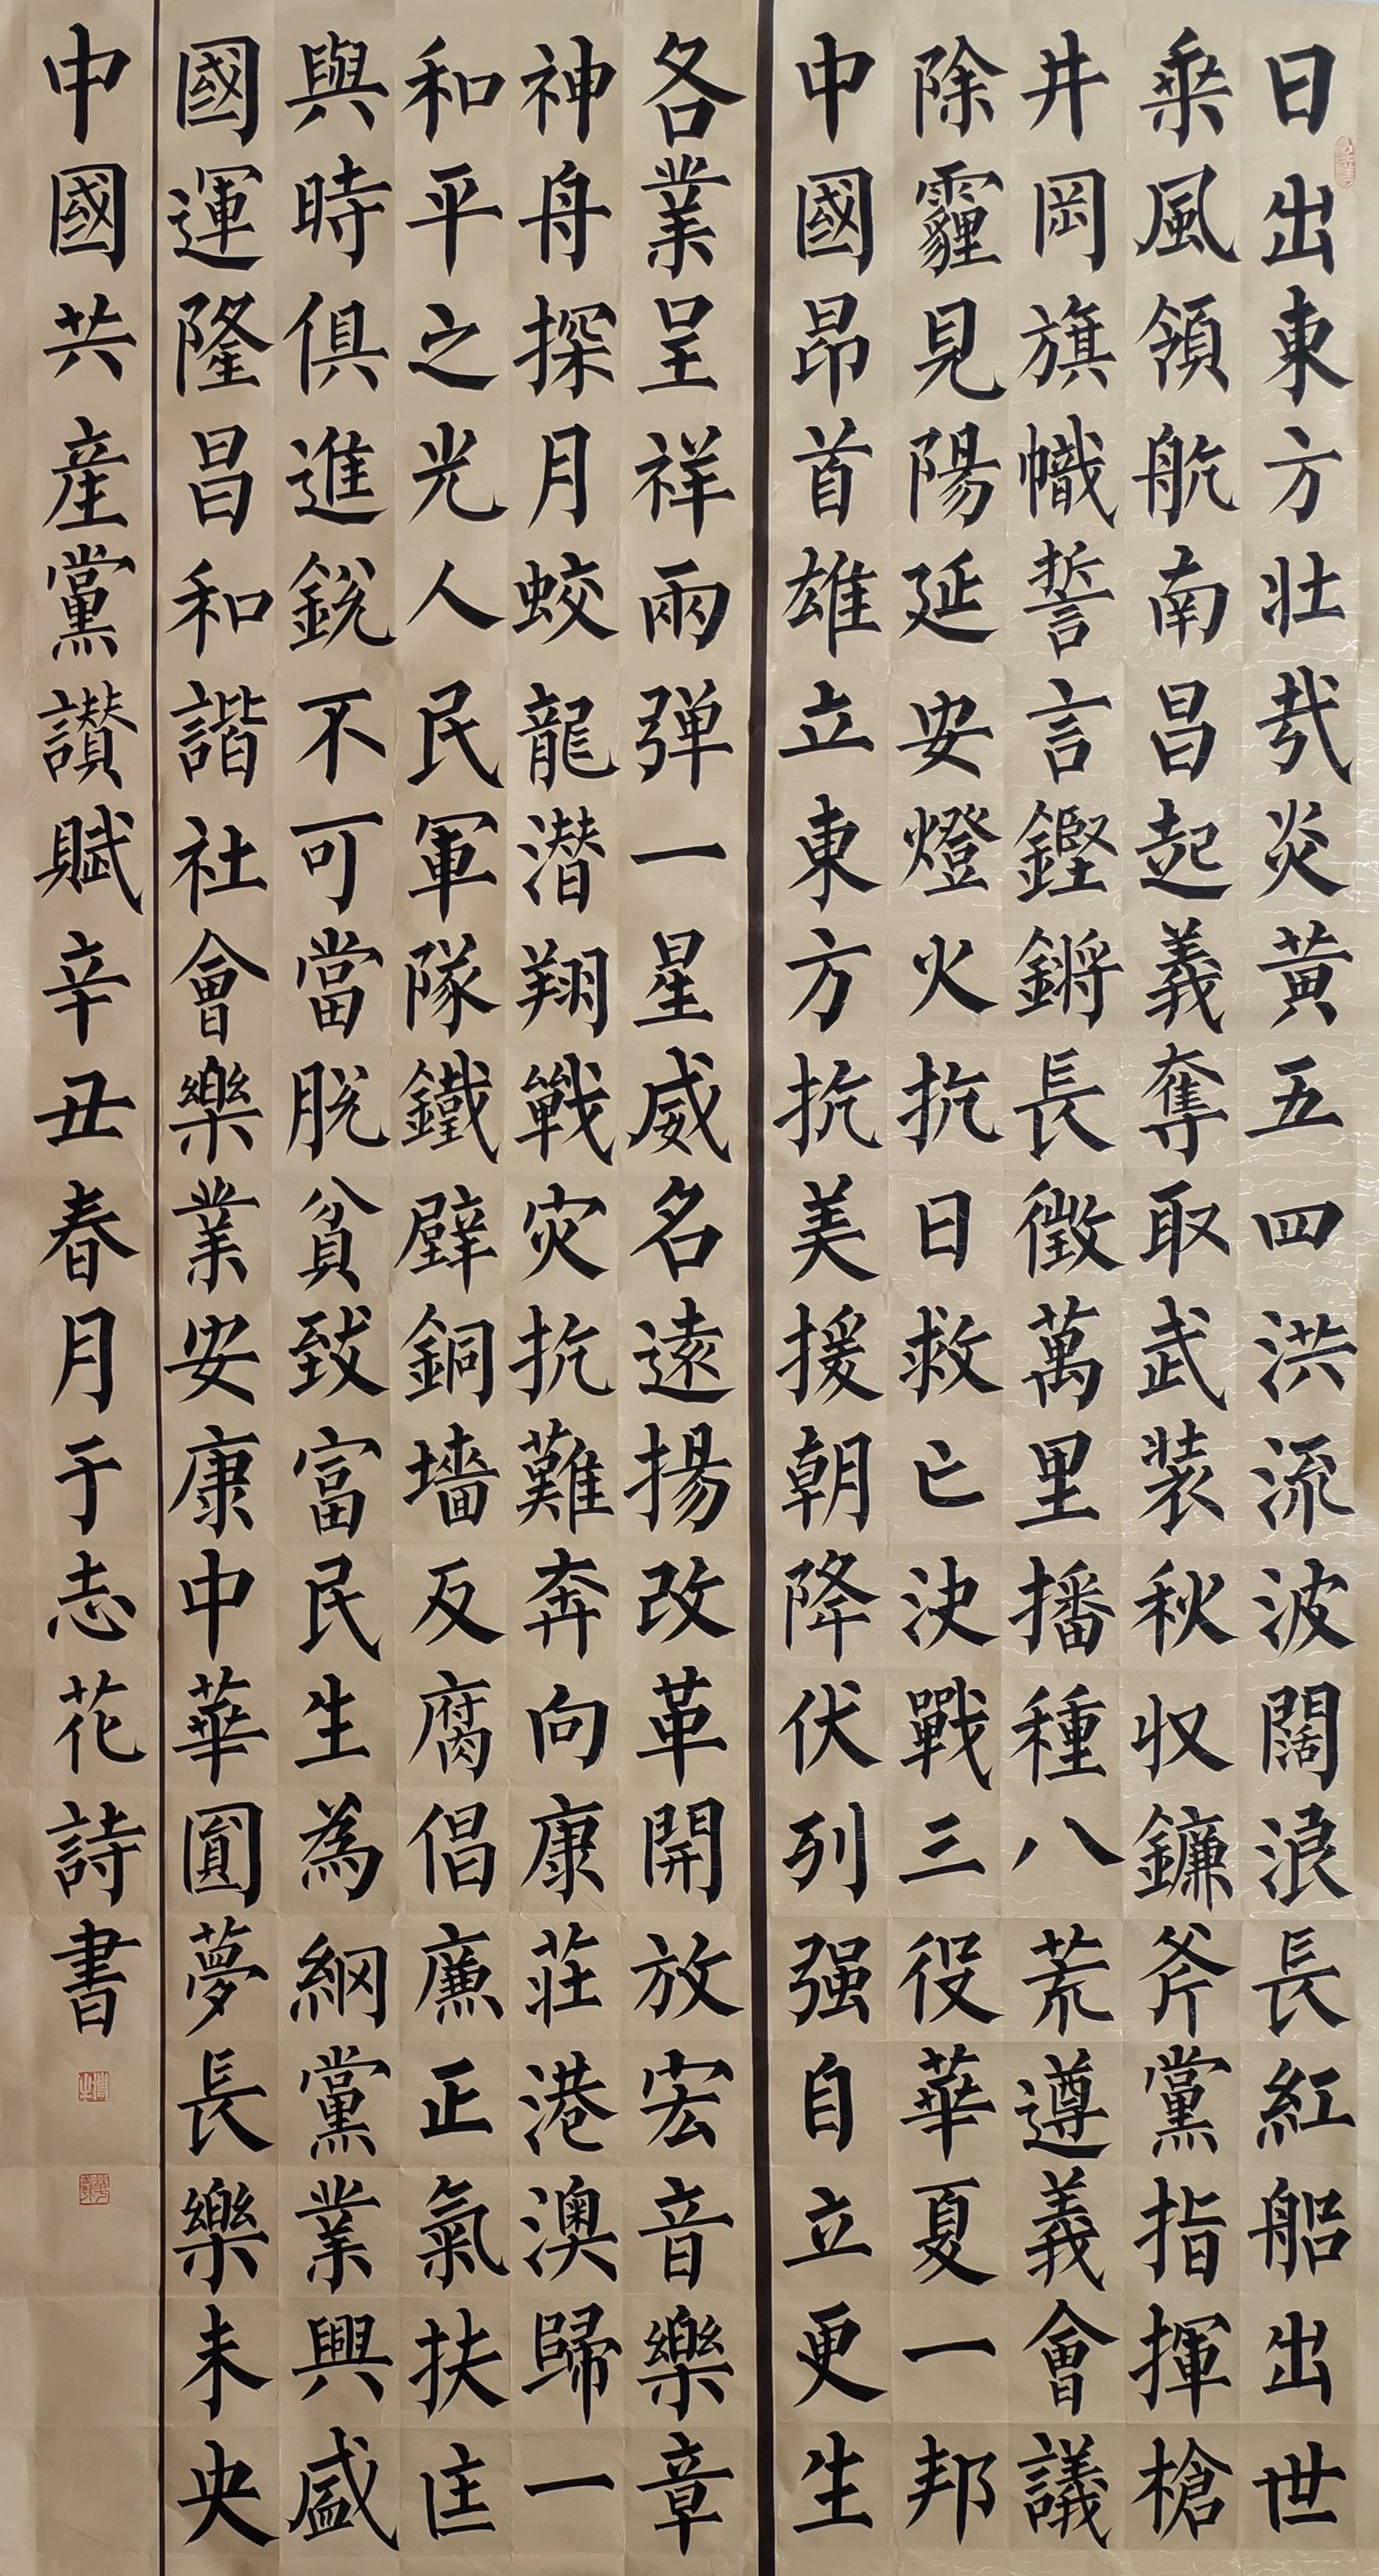 日出東方壮哉炎黄五四洪流波闊浪長紅船出世
乘風領航南昌起義奪取武装秋收鐮斧黨指揮槍
井岡旗幟誓言鏗鏘長徵萬里播種八荒遵義會議
除霾見陽延安燈火抗日救亡決戰三役華夏一邦
中國昂首雄立東方抗美援朝降伏列强自立更生
各業呈祥兩弹一星威名遠揚改革開放宏音樂章
神舟探月蛟龍潜翔戰灾抗難奔向康莊港澳歸一
和平之光人民軍隊鐵壁銅墻反腐倡廉正氣扶匡
與時俱進銳不可當脱貧致富民生為綱黨業興盛
國運隆昌和諧社會樂業安康中華圓夢長樂未央
中國共産黨讃賦辛丑春月于志花詩書